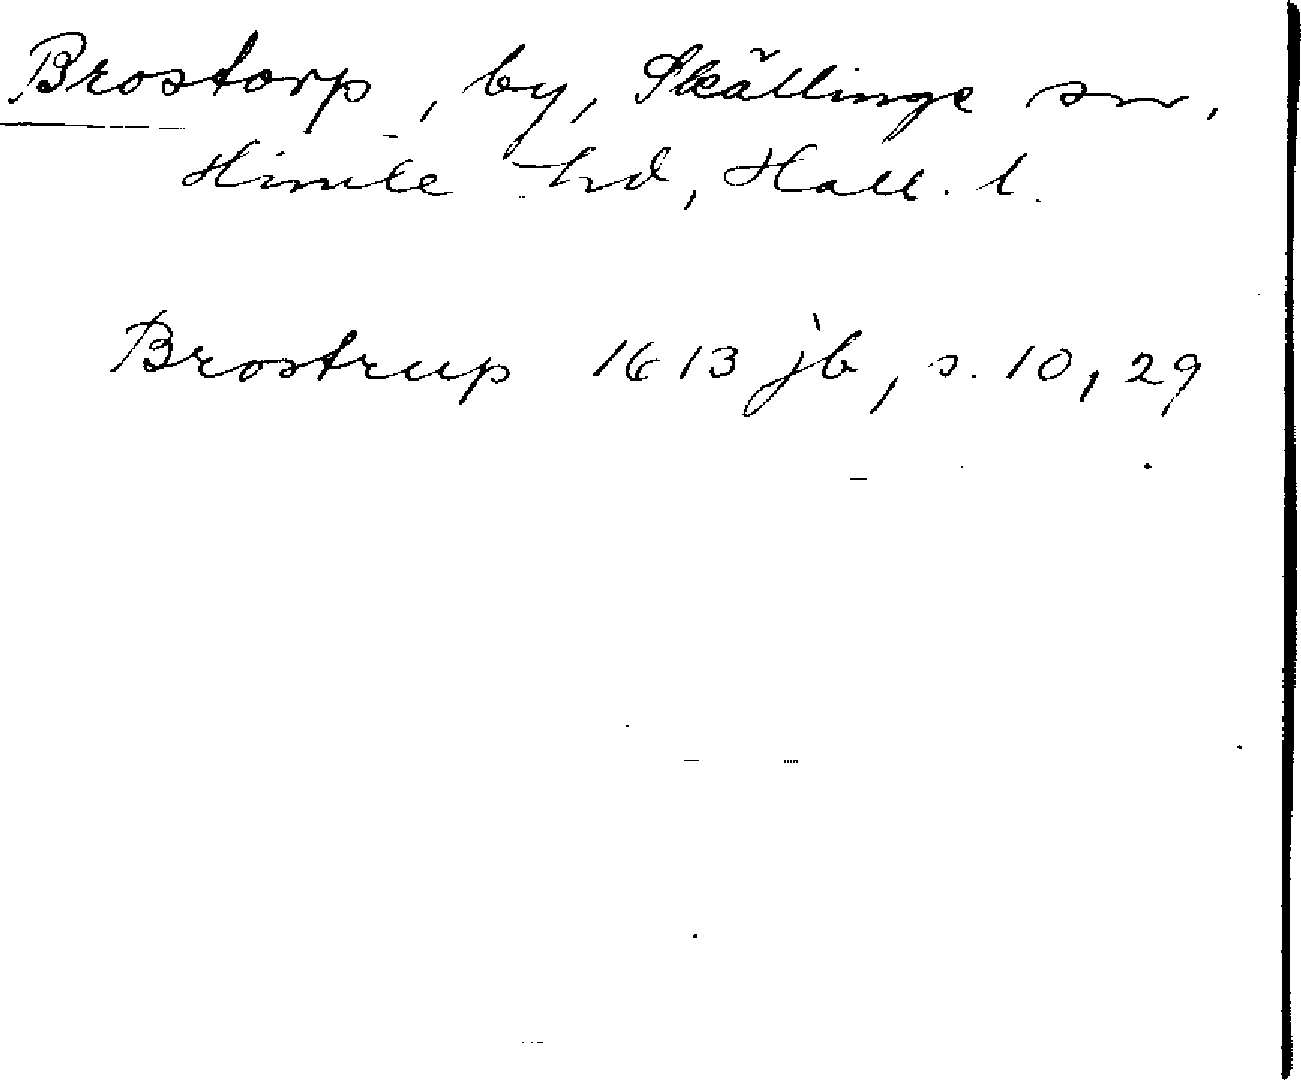 Brostorp, by, Skällinge sn,
Himle hd, Hall. l.
Brostrup 1613 jb, s. 10, 29